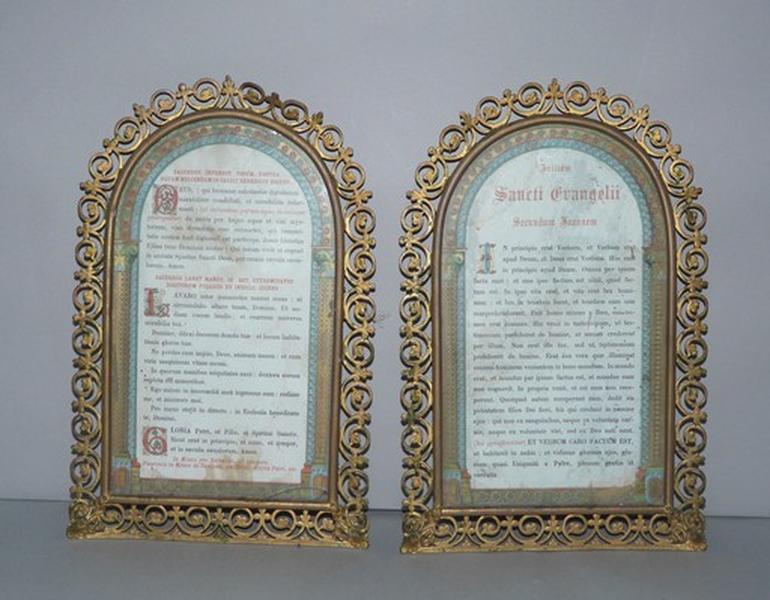 SACERDOS INFUNDIT VINUM, POSTEA
AQUAM BENEDICIT DICENS
DEUS, qui humanæ substantiæ dignitatem
mirabiliter condidisti, et mirabilius refor-
masti
da nobis per hujus aquæ et vini mys-
terium, ejus divinitatis esse consortes, qui humani-
tatis nostræ fieri dignatus est particeps, Jesus Christus
Filius tuus Dominus noster : Qui tecum vivit et regnat
in unitate Spiritus Sancti Deus, per omnia sæcula sæcu-
lorum. Amen.
SACERDOS LAVAT MANUS, ID EST, EXTREMITATES
DIGITORUM POLLICIS ET INDICIS, DICENS
LAVABO inter innocentes manus meas : et
circumdabo altare tuum, Domine. Ut au-
diam vocem laudis : et enarrem universa
mirabilia tua.
Domine, dilexi decorem domus tuæ : et locum habita-
tionis gloriæ tuæ.
Ne perdas cum impiis, Deus, animam meam : et cum
viris sanguinum vitam meam.
In quorum manibus iniquitates sunt : dextera eorum
repleta est muneribus.
Ego autem in innocentia mea ingressus sum : redime
me, et miserere mei.
Pes meus stetit in directo : in Ecclesiis benedicam
te, Domine.
GLORIA Patri, et Filio, et Spiritui Sancto.
Sicut erat in principio, et nunc, et semper,
et in sæcula sæculorum. Amen.
Initium
Sancti Evangelii
Secundum Joannem
IN principio erat Verbum, et Verbum erat
apud Deum, et Deus erat Verbum. Hoc erat
in principio apud Deum. Omnia per ipsum
facta sunt : et sine ipso factum est nihil, quod fac-
tum est. In ipso vita erat, et vita erat lux homi-
num : et lux in tenebris lucet, et tenebræ eam non
comprehenderunt. Fuit homo missus a Deo, cui no-
men erat Joannes. Hic venit in testimonium, ut tes-
timonium perhiberet de lumine, ut omnes crederent
per illum. Non erat ille lux, sed ut testimonium
perhiberet de lumine. Erat lux vera quæ illuminat
omnem hominem venientem in hunc mundum. In mundo
erat, et mundus per ipsum factus est, et mundus eum
non cognovit. In propria venit, et sui eum non rece-
perunt. Quotquot autem receperunt eum, dedit eis
potestatem filios Dei fieri, his qui credunt in nomine
ejus : qui non ex sanguinibus, neque ex voluntate car-
nis, neque ex voluntate viri, sed ex Deo nati sunt.
ET VERBUM CARO FACTUM EST,
et habitavit in nobis : et vidimus gloriam ejus, glo-
riam quasi Unigeniti a Patre, plenum gratiæ et
veritatis